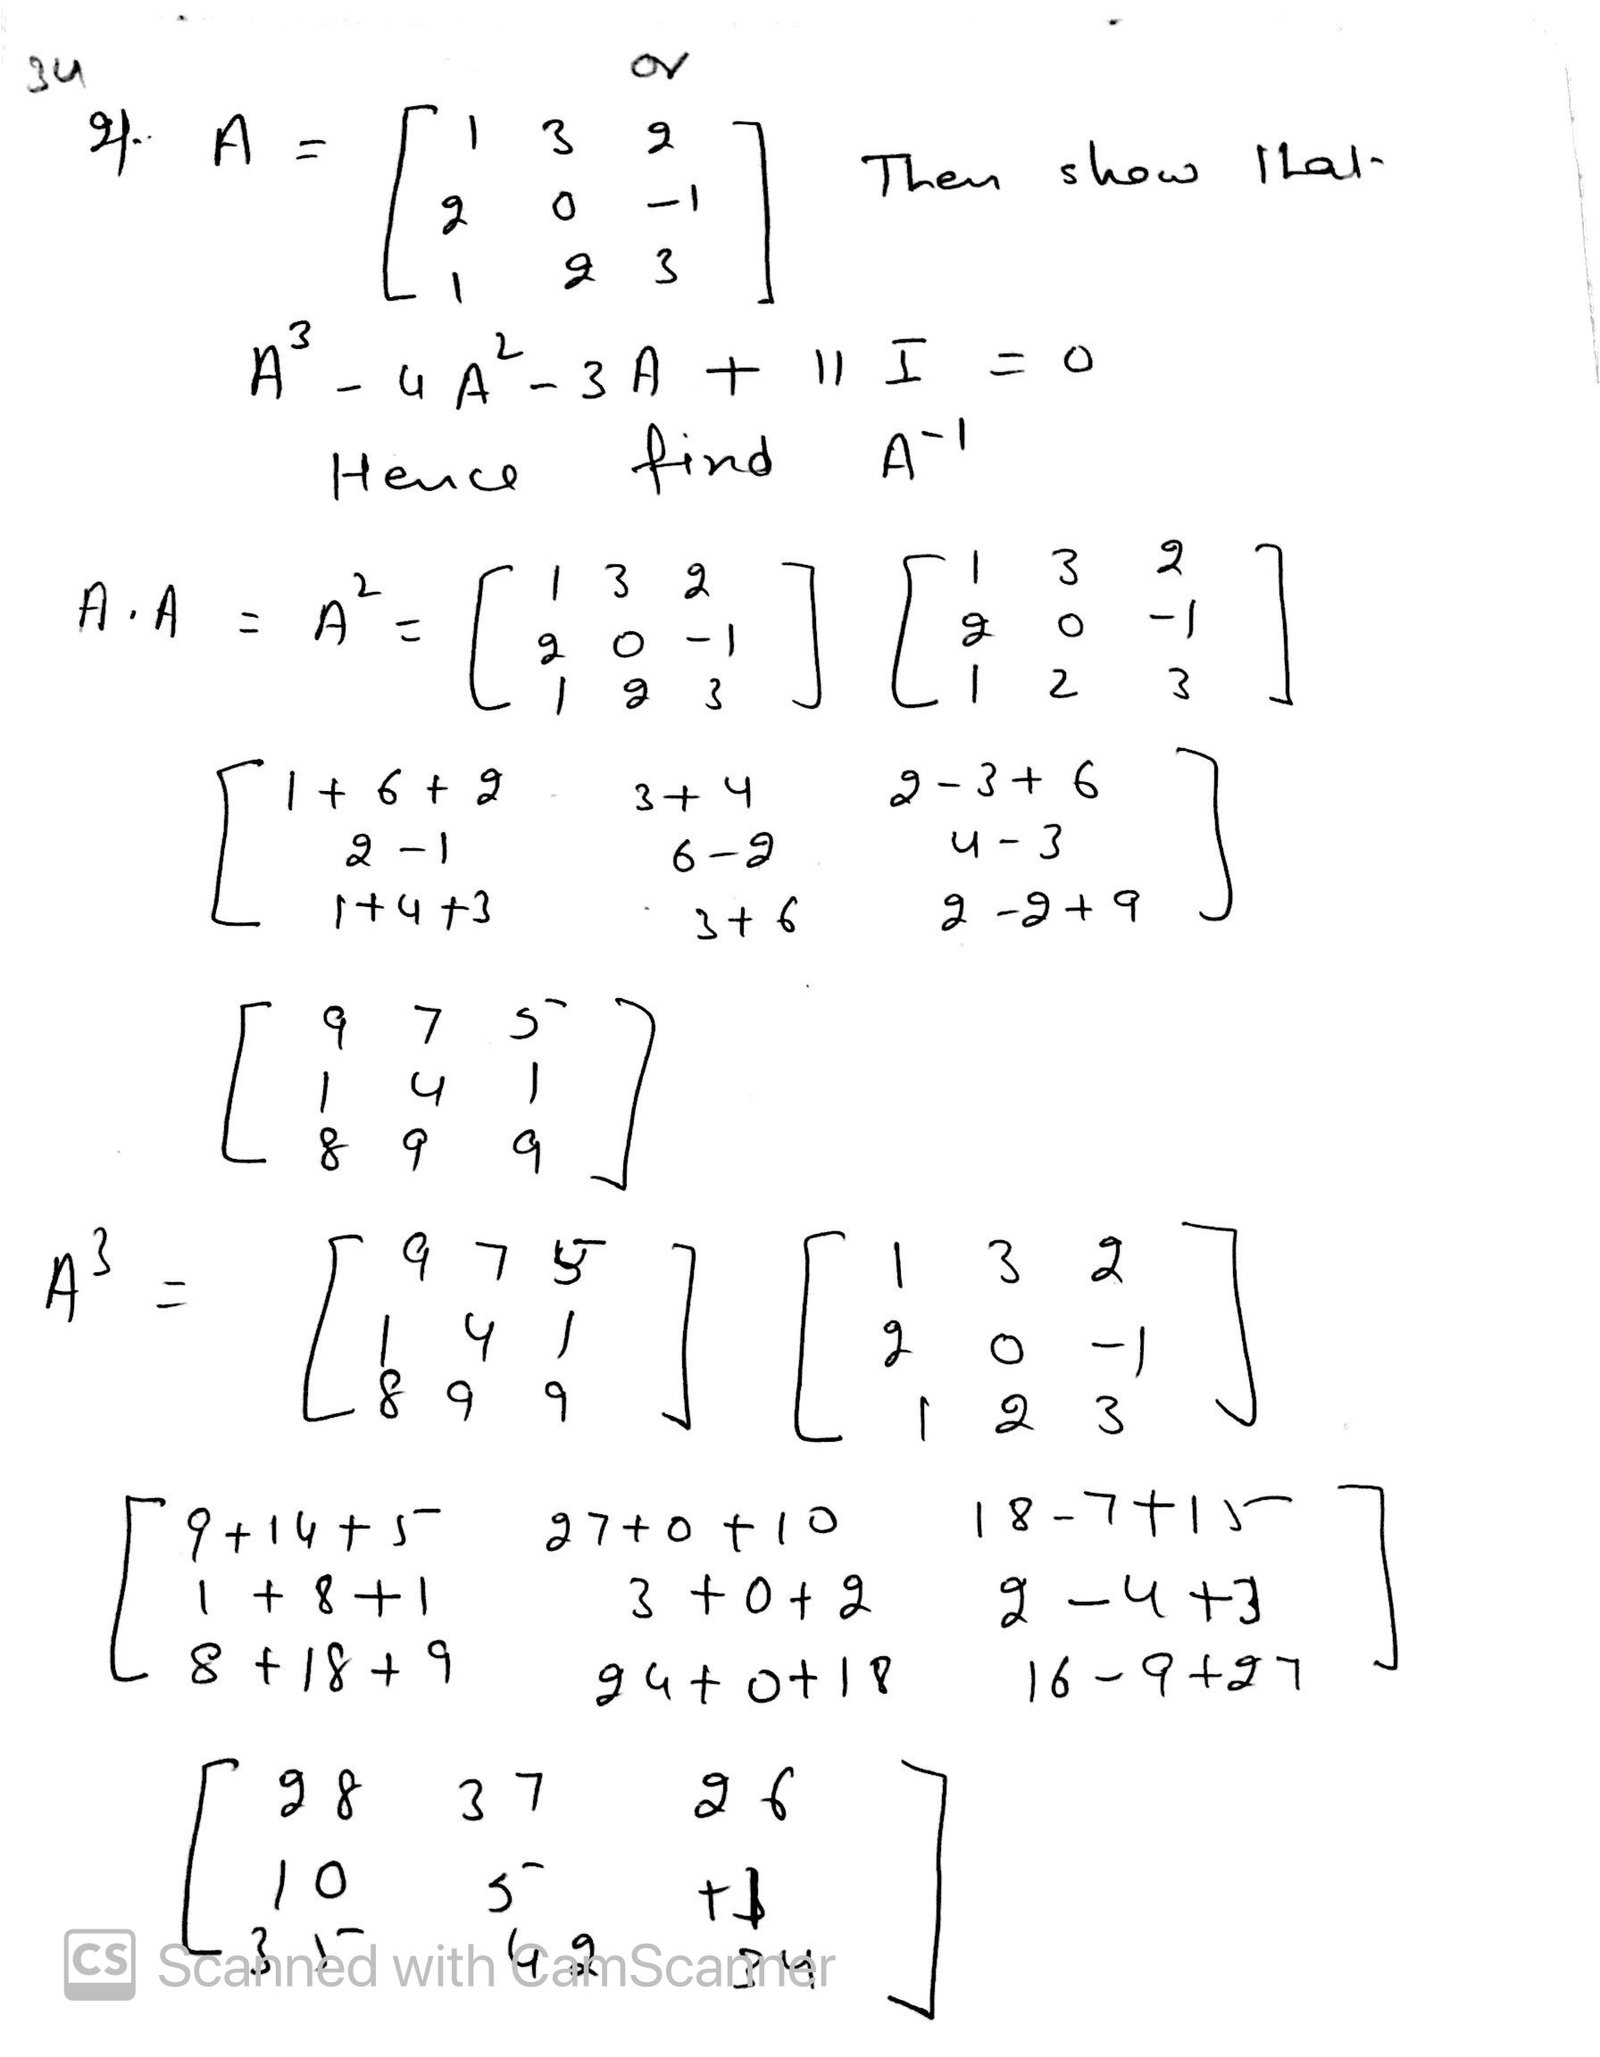 34
or
If A = [ 1 3 2
2 0 -1
1 2 3 ] Then show that
A³ - 4A² - 3A + 11 I = 0
Hence find A⁻¹
A.A = A² = [ 1 3 2 ] [ 1 3 2 ]
2 0 -1 2 0 -1
1 2 3 1 2 3
[ 1+6+2 3+4 2-3+6 ]
2-1 6-2 4-3
1+4+3 3+6 2-2+9
[ 9 7 5 ]
1 4 1
8 9 9
A³ = [ 9 7 5 ] [ 1 3 2 ]
1 4 1 2 0 -1
8 9 9 1 2 3
[ 9+14+5 27+0+10 18-7+15 ]
1+8+1 3+0+2 2-4+3
8+18+9 24+0+18 16-9+27
[ 28 37 26 ]
10 5 +1
35 42 34
CS Scanned with CamScanner